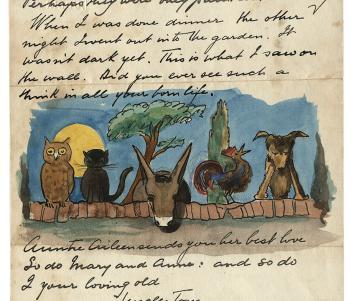 Perhaps they were only
When I was done dinner the other
night I went out into the garden. It
wasn't dark yet. This is what I saw on
the wall. Did you ever see such a
think in all your born life.
Auntie Aileen sends you her best love
So do Mary and Anne: and so do
I your loving old